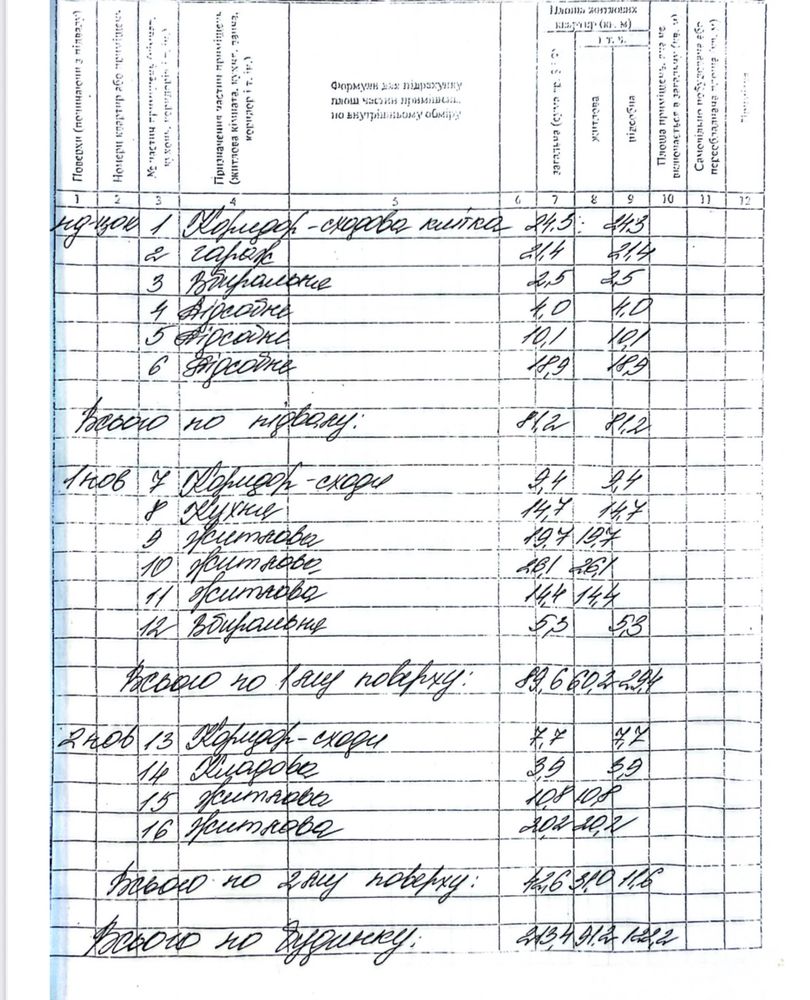 Поверхи (починаючи з підвалу)
Номери квартир або приміщень
Призначення частин приміщень (житлова кімната, кухня, ванна, коридор і т. ін.)
Формули для підрахунку
площ частин приміщень
по внутрішньому обміру
Площа житлових
квартир (кв. м)
і т. ч.
загальна
житлова
підсобна
Площа приміщень, що не включається в загальну (кв. м)
Самочинно побудована або переобладнана площа (кв. м)
1 2 3 4 5 6 7 8 9 10 11 12
1 Коридор-сходова клітка 24,3 24,3
2 гараж 21,4 21,4
3 Вбиральня 2,5 2,5
4 Підсобне 4,0 4,0
5 Підсобне 10,1 10,1
6 Підсобне 18,9 18,9
Всього по підвалу: 81,2 81,2
1 пов 7 Коридор-сходи 9,4 9,4
8 Кухня 14,7 14,7
9 Житлова 19,7 19,7
10 Житлова 26,1 26,1
11 Житлова 14,4 14,4
12 Вбиральня 5,3 5,3
Всього по 1 му поверху: 89,6 60,2 29,4
2 пов 13 Коридор-сходи 7,7 7,7
14 Кладова 3,9 3,9
15 Житлова 10,8 10,8
16 Житлова 20,2 20,2
Всього по 2 му поверху: 42,6 31,0 11,6
Всього по будинку: 213,4 91,2 122,2